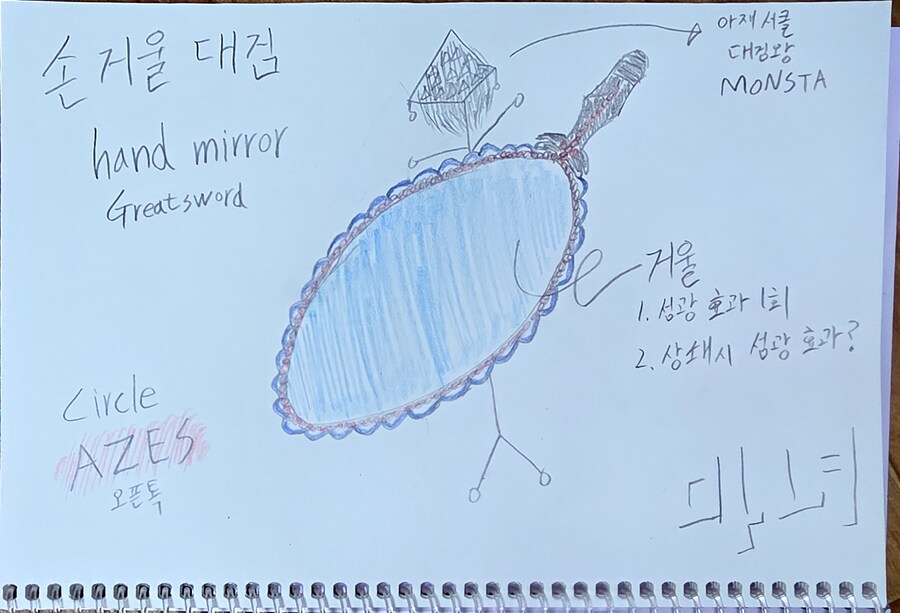 손 거울 대검
hand mirror
Greatsword
아재 서클
대검왕
MONSTA
거울
1. 섬광 효과 1회
2. 상쇄시 섬광 효과?
Circle
AZES
오픈톡